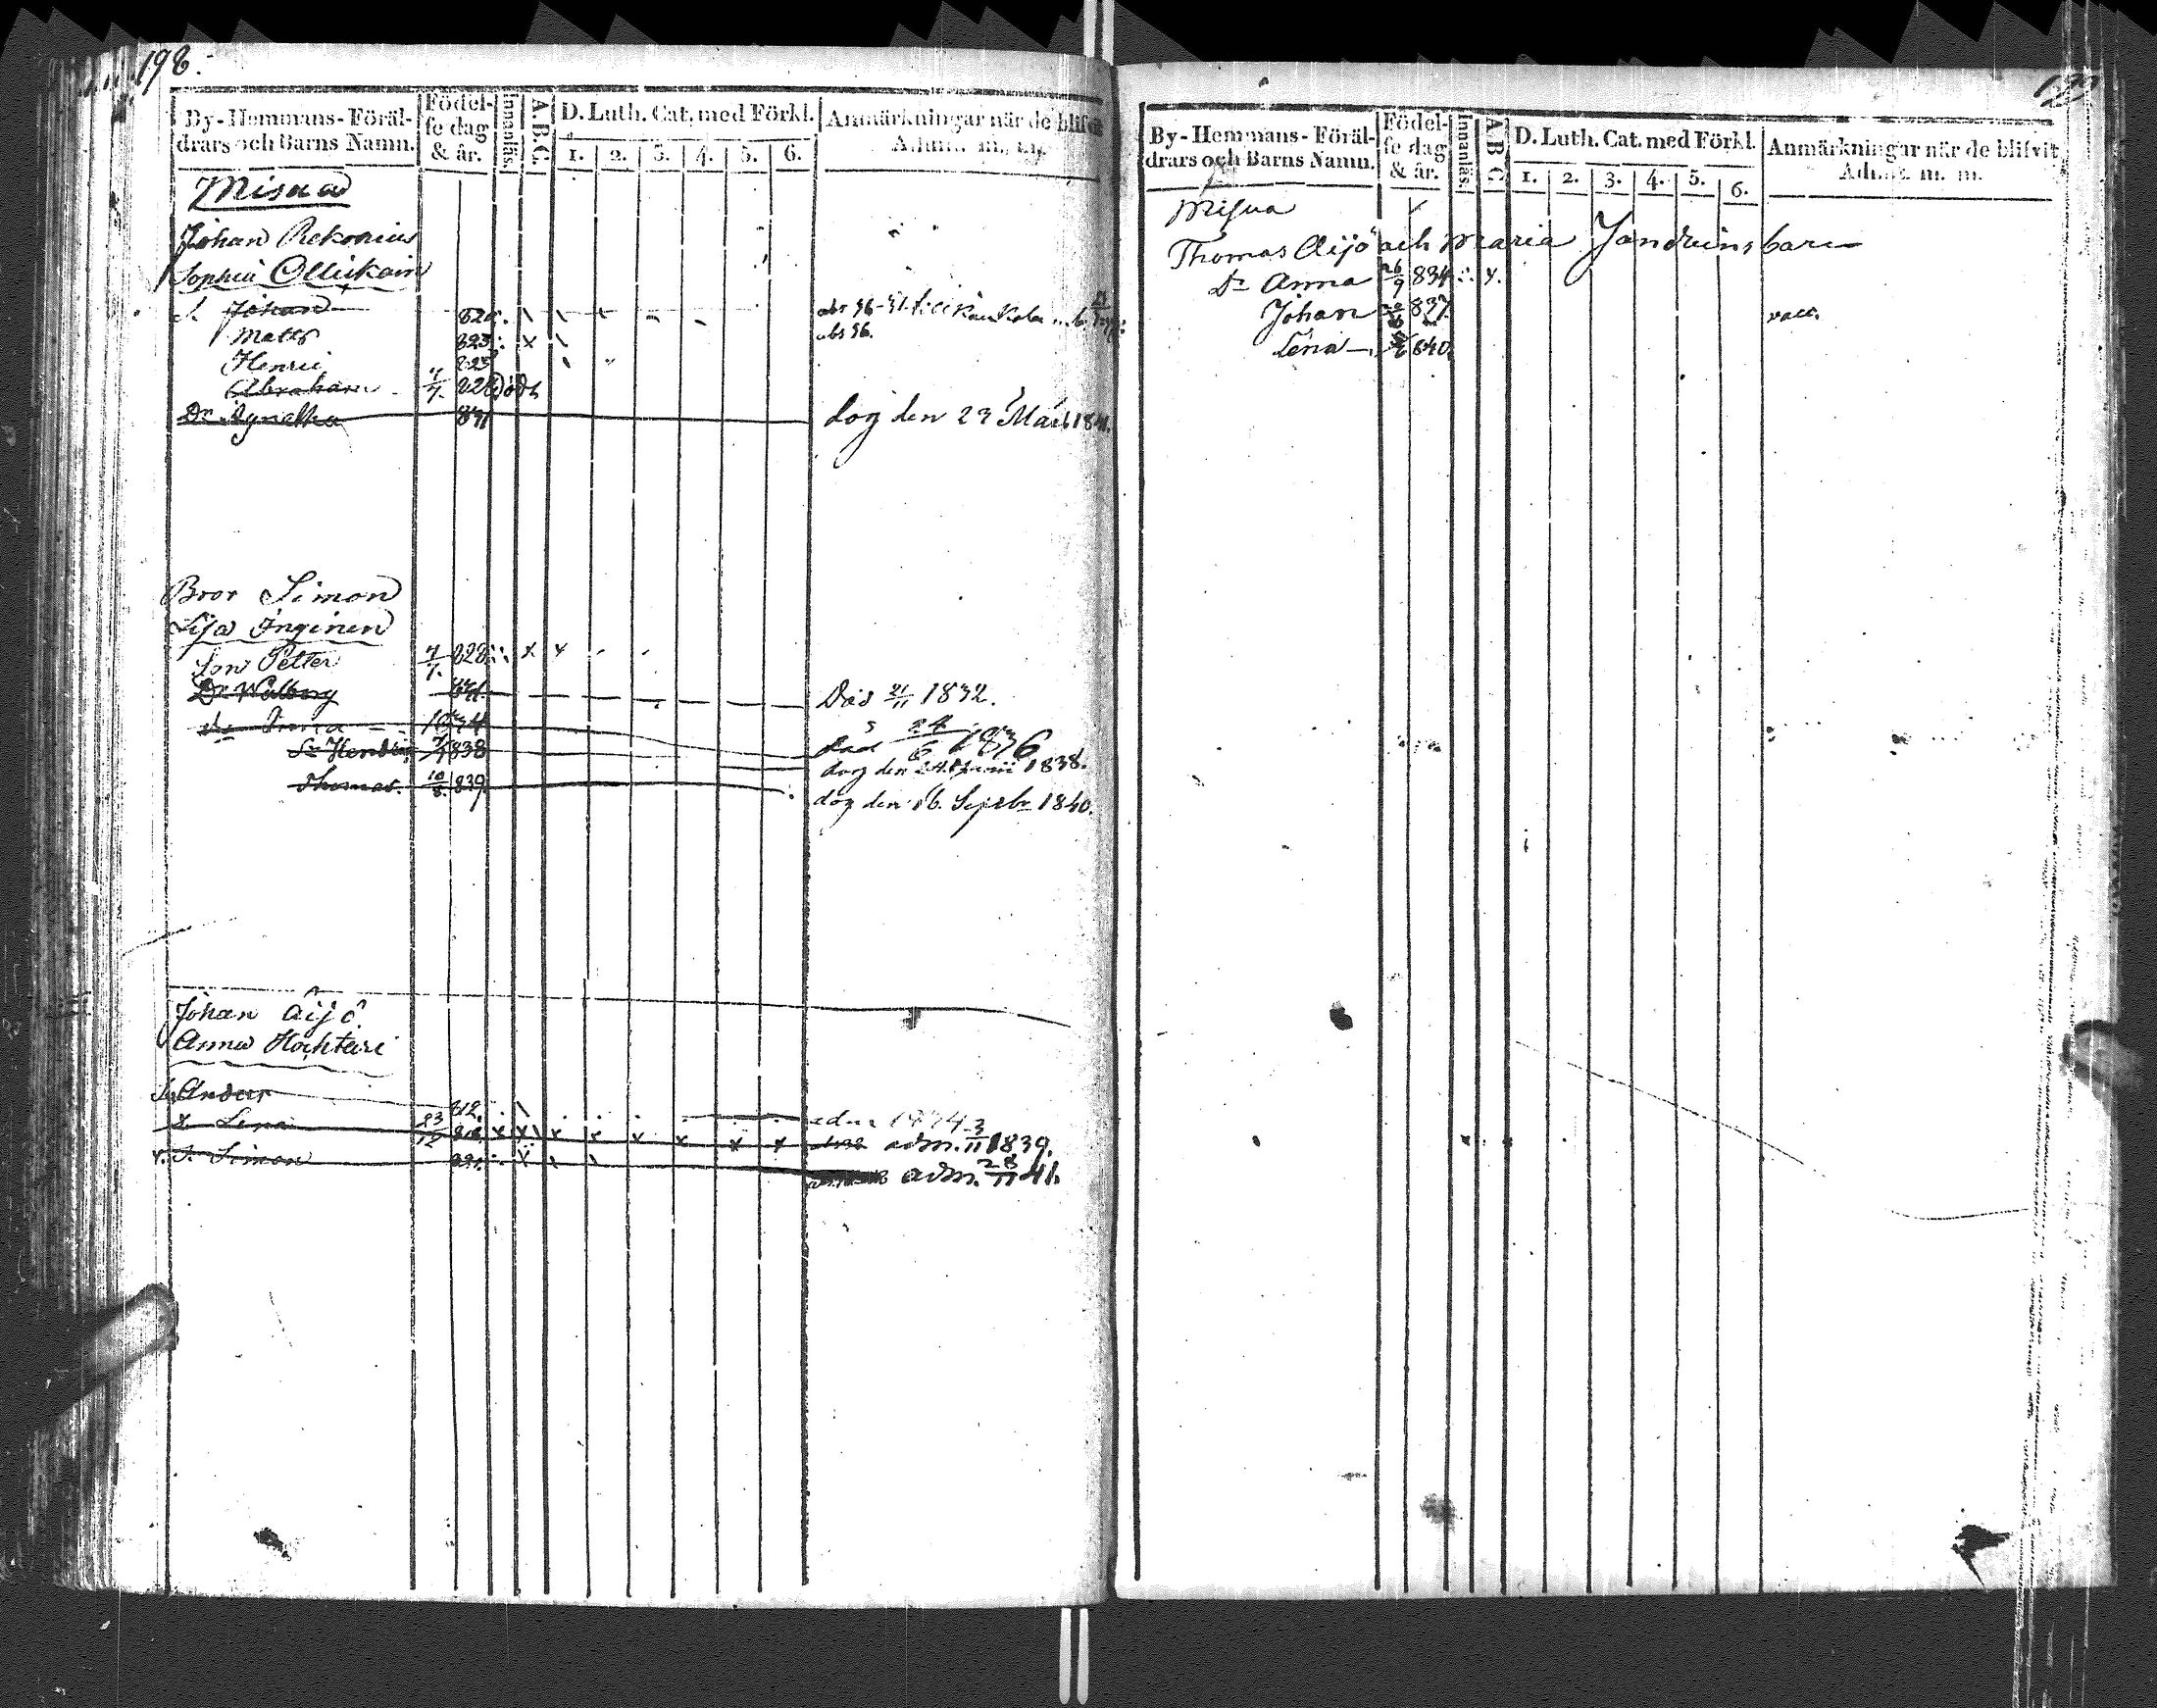 198.
By-Hemmans-Föräl-
drars och Barns Namn.
Födel-
se dag
& år.
Innanläs.
A.B.C.
D. Luth. Cat. med Förkl.
1. 2. 3. 4. 5. 6.
Anmärkningar när de blifvit
Admit. m. m.
Misua
Johan Rekonius
Sophia Ollikain
S. Johan 820
Matts 823 abs 36.
Henric 825
Abraham 4/7. 828 död
Dr. Agnetha 831 dog den 29 Maii 1841.
Bror Simon
Lisa Inginen
Son Petter 4/7. 828
Dr Walborg 831 Död 21/11 1832.
Dr Anna 10/4 34 död 24/6 1836
Sn Hendric 7/1 838 dog den 24 Junii 1838.
Thomas. 10/8. 839 dog den 16. Septbr 1840.
Johan Äijö
Anna Hächtäri
Sn Anders 812. adm 1834
Lena 23/12 818 adm. 3/11 1839.
S. Simon 821. adm. 28/11 41.
199
By-Hemmans-Föräl-
drars och Barns Namn.
Födel-
se dag
& år.
Innanläs.
A B C
D. Luth. Cat. med Förkl.
1. 2. 3. 4. 5. 6.
Anmärkningar när de blifvit
Admit. m. m.
Misua
Thomas Äijö och Maria Jandruins barn
Dr Anna 26/9 834
Johan 837. vacc.
Lena 840.